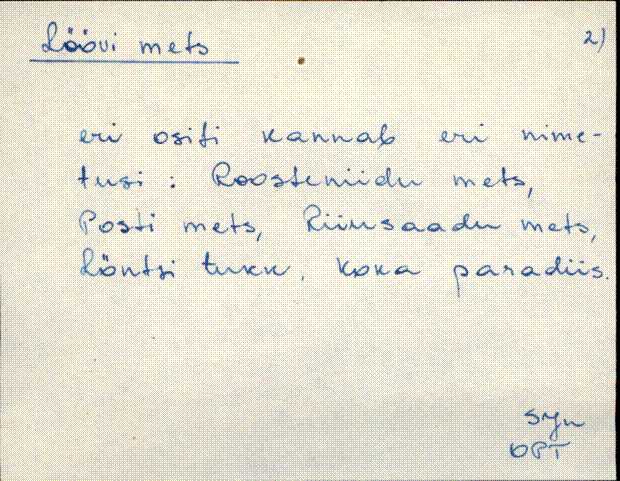 Löövi mets
2)
eri ositi kannab eri nime-
tusi : Roosteniidu mets,
Posti mets, Riinsaadu mets,
Löntsi tukk, Koka paradiis.
syn
OPT